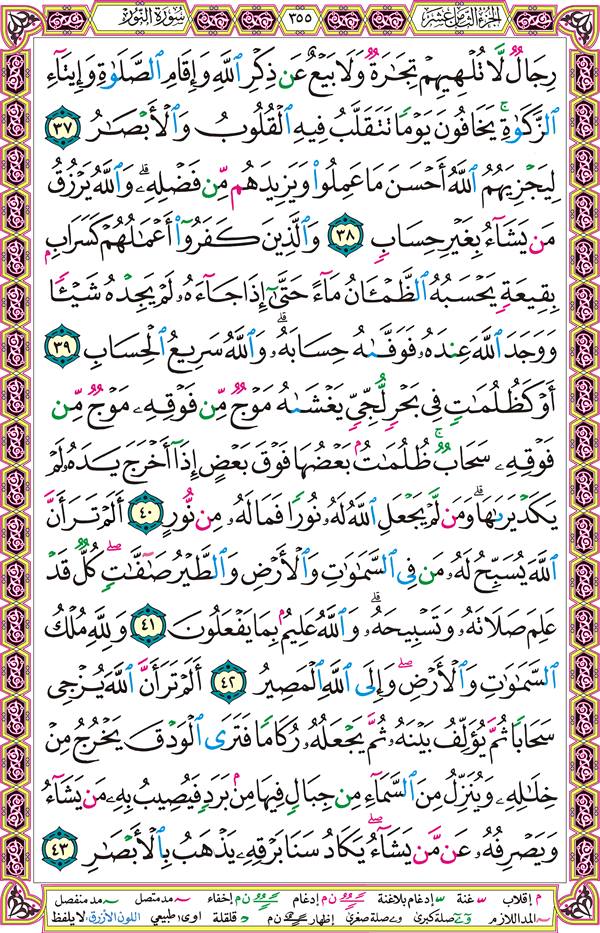 الجزء الثامن عشر ٣٥٥ سورة النور
رِجَالٌ لَّا تُلْهِيهِمْ تِجَٰرَةٌ وَلَا بَيْعٌ عَن ذِكْرِ ٱللَّهِ وَإِقَامِ ٱلصَّلَوٰةِ وَإِيتَآءِ
ٱلزَّكَوٰةِ ۙ يَخَافُونَ يَوْمًا تَتَقَلَّبُ فِيهِ ٱلْقُلُوبُ وَٱلْأَبْصَٰرُ ٣٧
لِيَجْزِيَهُمُ ٱللَّهُ أَحْسَنَ مَا عَمِلُوا۟ وَيَزِيدَهُم مِّن فَضْلِهِۦ ۗ وَٱللَّهُ يَرْزُقُ
مَن يَشَآءُ بِغَيْرِ حِسَابٍ ٣٨ وَٱلَّذِينَ كَفَرُوٓا۟ أَعْمَٰلُهُمْ كَسَرَابٍۭ
بِقِيعَةٍ يَحْسَبُهُ ٱلظَّمْـَٔانُ مَآءً حَتَّىٰٓ إِذَا جَآءَهُۥ لَمْ يَجِدْهُ شَيْـًٔا
وَوَجَدَ ٱللَّهَ عِندَهُۥ فَوَفَّىٰهُ حِسَابَهُۥ ۗ وَٱللَّهُ سَرِيعُ ٱلْحِسَابِ ٣٩
أَوْ كَظُلُمَٰتٍ فِى بَحْرٍ لُّجِّىٍّ يَغْشَىٰهُ مَوْجٌ مِّن فَوْقِهِۦ مَوْجٌ مِّن
فَوْقِهِۦ سَحَابٌ ۚ ظُلُمَٰتٌۢ بَعْضُهَا فَوْقَ بَعْضٍ إِذَآ أَخْرَجَ يَدَهُۥ لَمْ
يَكَدْ يَرَىٰهَا ۗ وَمَن لَّمْ يَجْعَلِ ٱللَّهُ لَهُۥ نُورًا فَمَا لَهُۥ مِن نُّورٍ ٤٠ أَلَمْ تَرَ أَنَّ
ٱللَّهَ يُسَبِّحُ لَهُۥ مَن فِى ٱلسَّمَٰوَٰتِ وَٱلْأَرْضِ وَٱلطَّيْرُ صَٰٓفَّٰتٍ ۖ كُلٌّ قَدْ
عَلِمَ صَلَاتَهُۥ وَتَسْبِيحَهُۥ ۗ وَٱللَّهُ عَلِيمٌۢ بِمَا يَفْعَلُونَ ٤١ وَلِلَّهِ مُلْكُ
ٱلسَّمَٰوَٰتِ وَٱلْأَرْضِ ۖ وَإِلَى ٱللَّهِ ٱلْمَصِيرُ ٤٢ أَلَمْ تَرَ أَنَّ ٱللَّهَ يُزْجِى
سَحَابًا ثُمَّ يُؤَلِّفُ بَيْنَهُۥ ثُمَّ يَجْعَلُهُۥ رُكَامًا فَتَرَى ٱلْوَدْقَ يَخْرُجُ مِنْ
خِلَٰلِهِۦ وَيُنَزِّلُ مِنَ ٱلسَّمَآءِ مِن جِبَالٍ فِيهَا مِنۢ بَرَدٍ فَيُصِيبُ بِهِۦ مَن يَشَآءُ
وَيَصْرِفُهُۥ عَن مَّن يَشَآءُ ۖ يَكَادُ سَنَا بَرْقِهِۦ يَذْهَبُ بِٱلْأَبْصَٰرِ ٤٣
م إقلاب غنة إدغام بلاغنة ن م إدغام ن م إخفاء مد متصل مد منفصل
المد اللازم صلة كبرى صلة صغرى إظهار ن م قلقلة اوى طبيعي اللون الأزرق: لا يلفظ